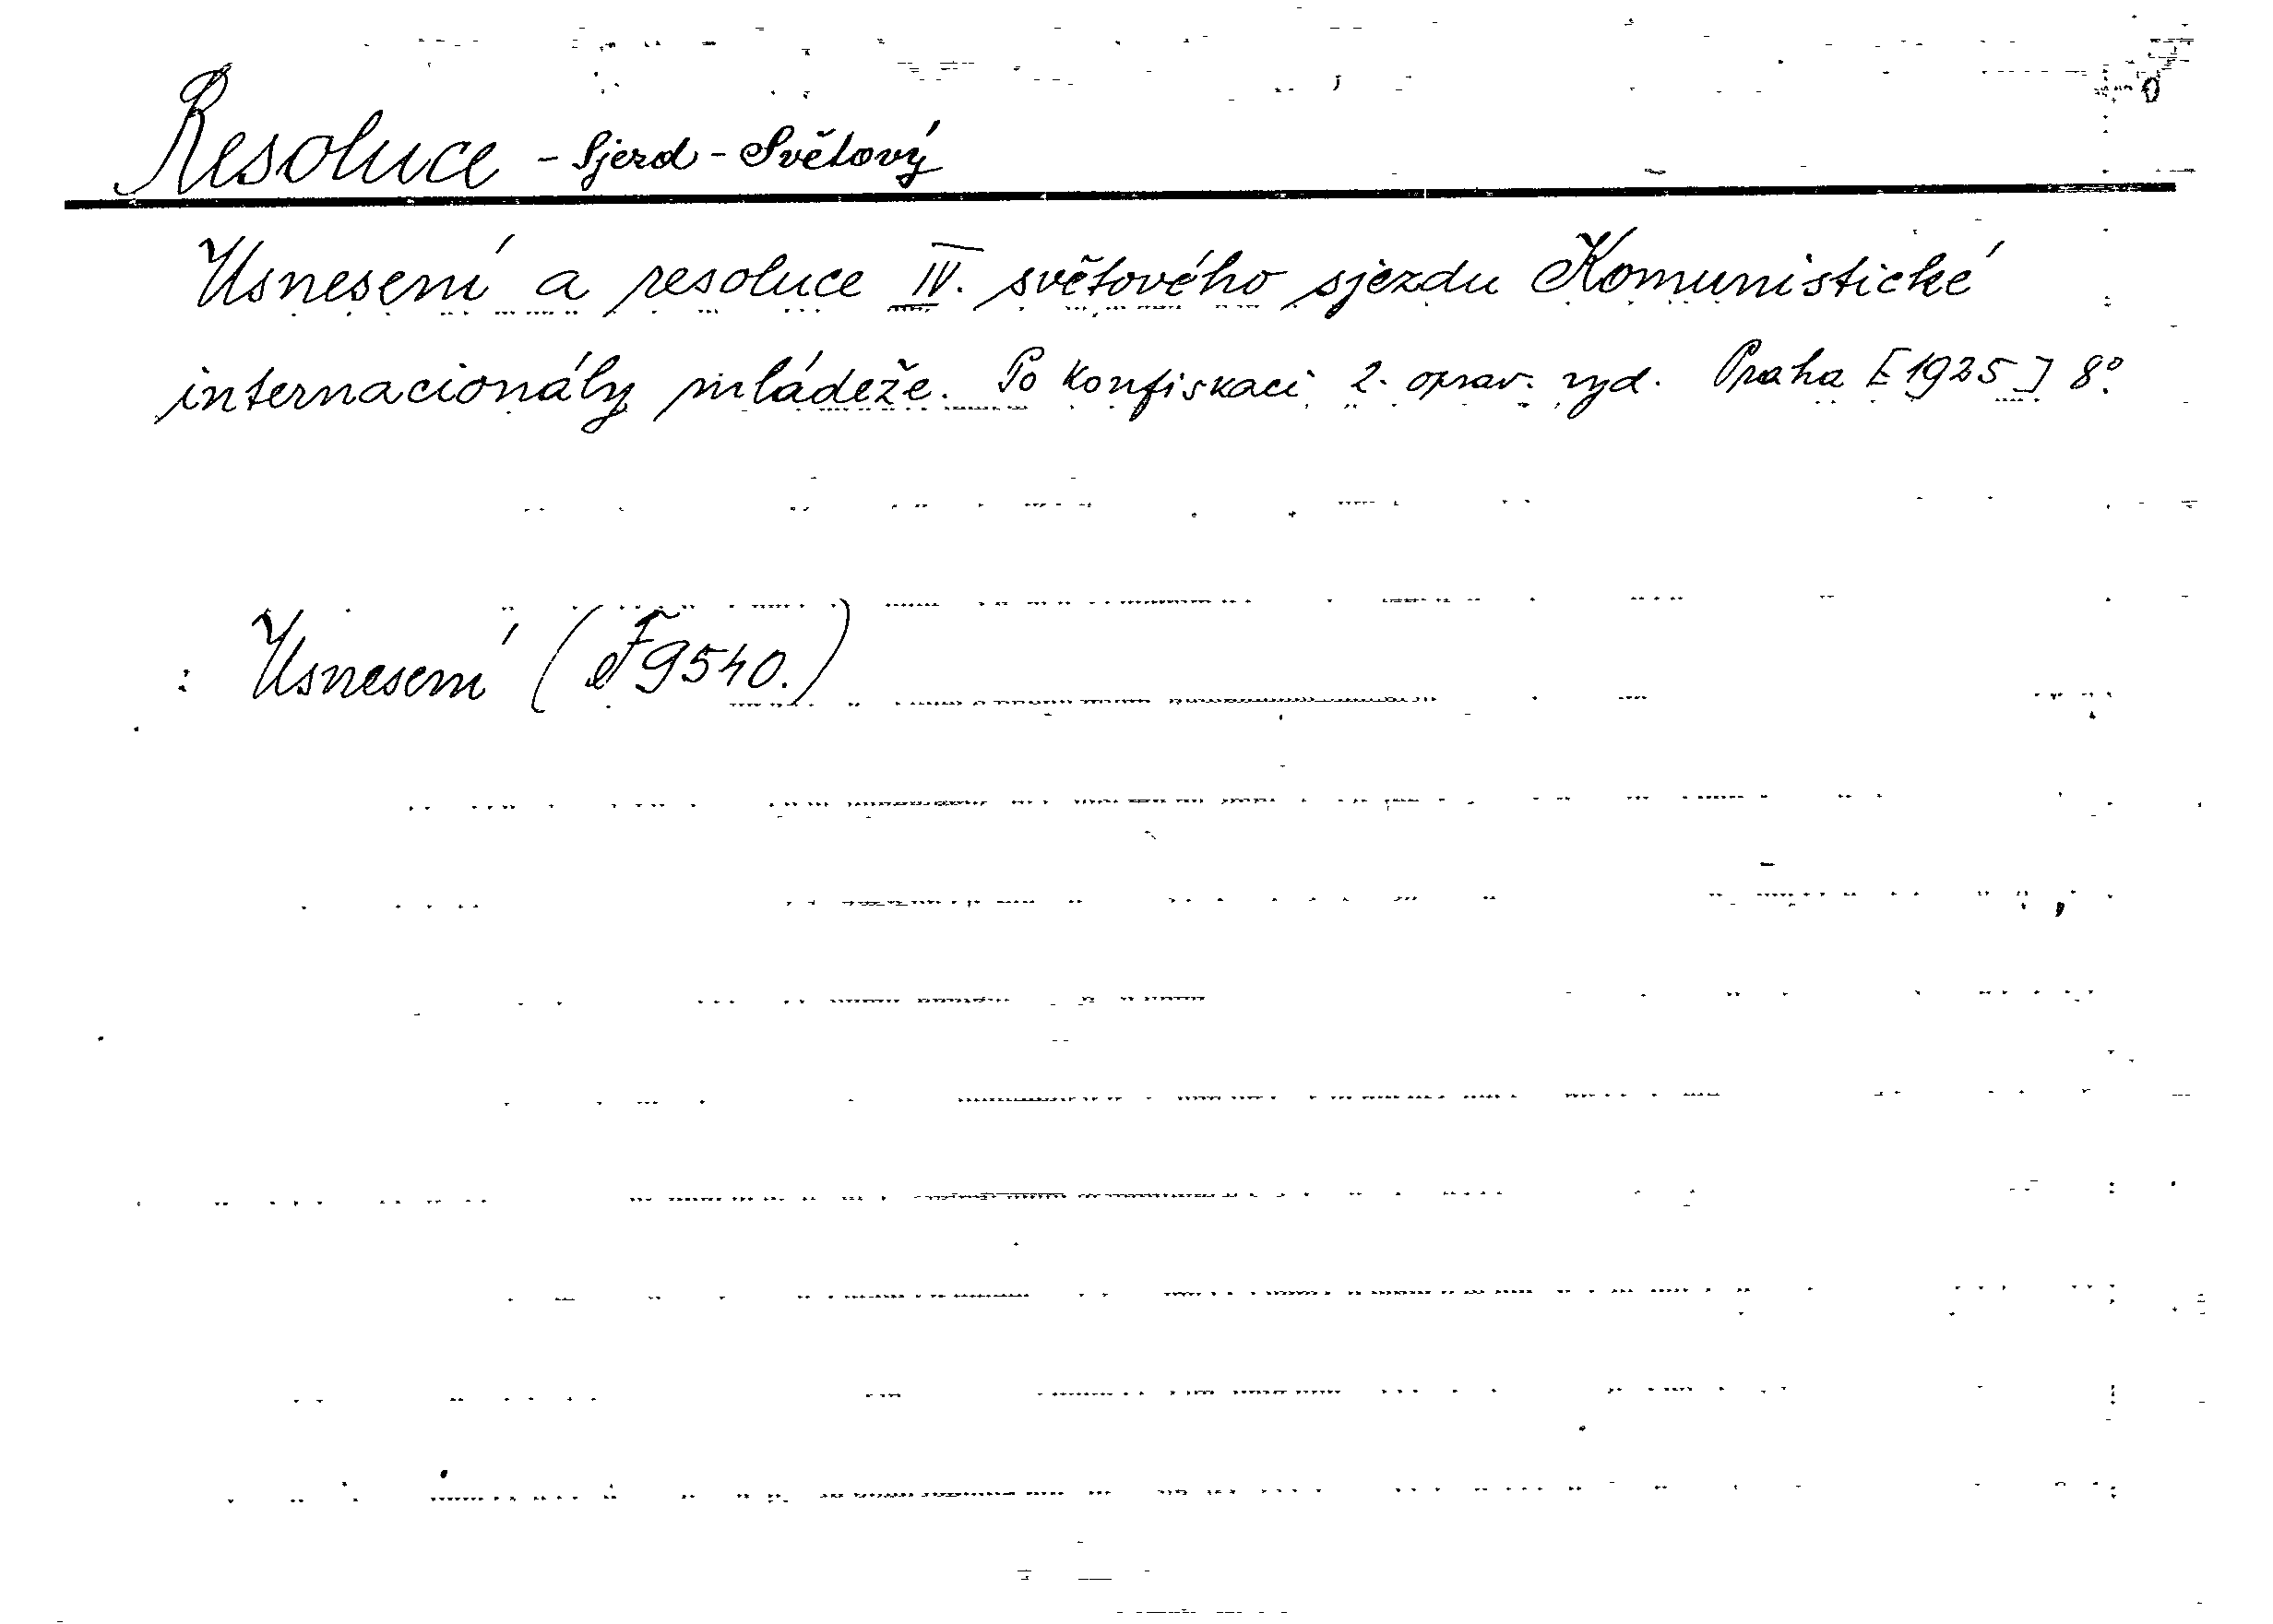 Resoluce - Sjezd - Světový
Usnesení a resoluce IV. světového sjezdu Komunistické
internacionály mládeže. Po konfiskaci 2. oprav. vyd. Praha [1925] 8°.
: Usnesení (F 9540.)